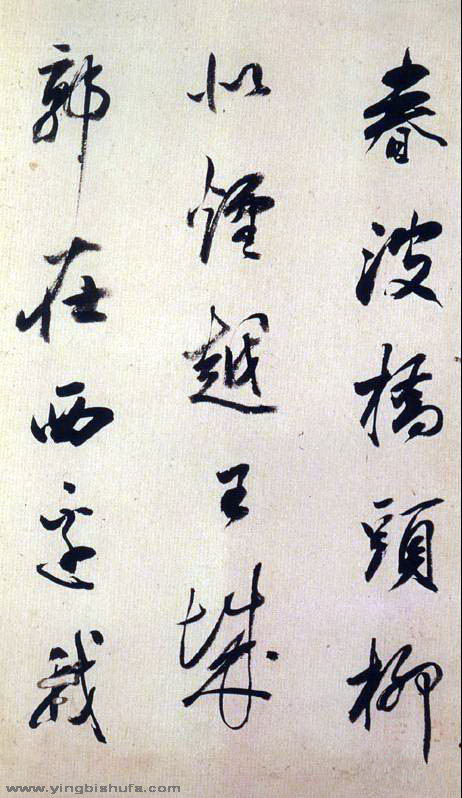 春波橋頭柳
似煙越王城
郭在西邊
www.yingbishufa.com